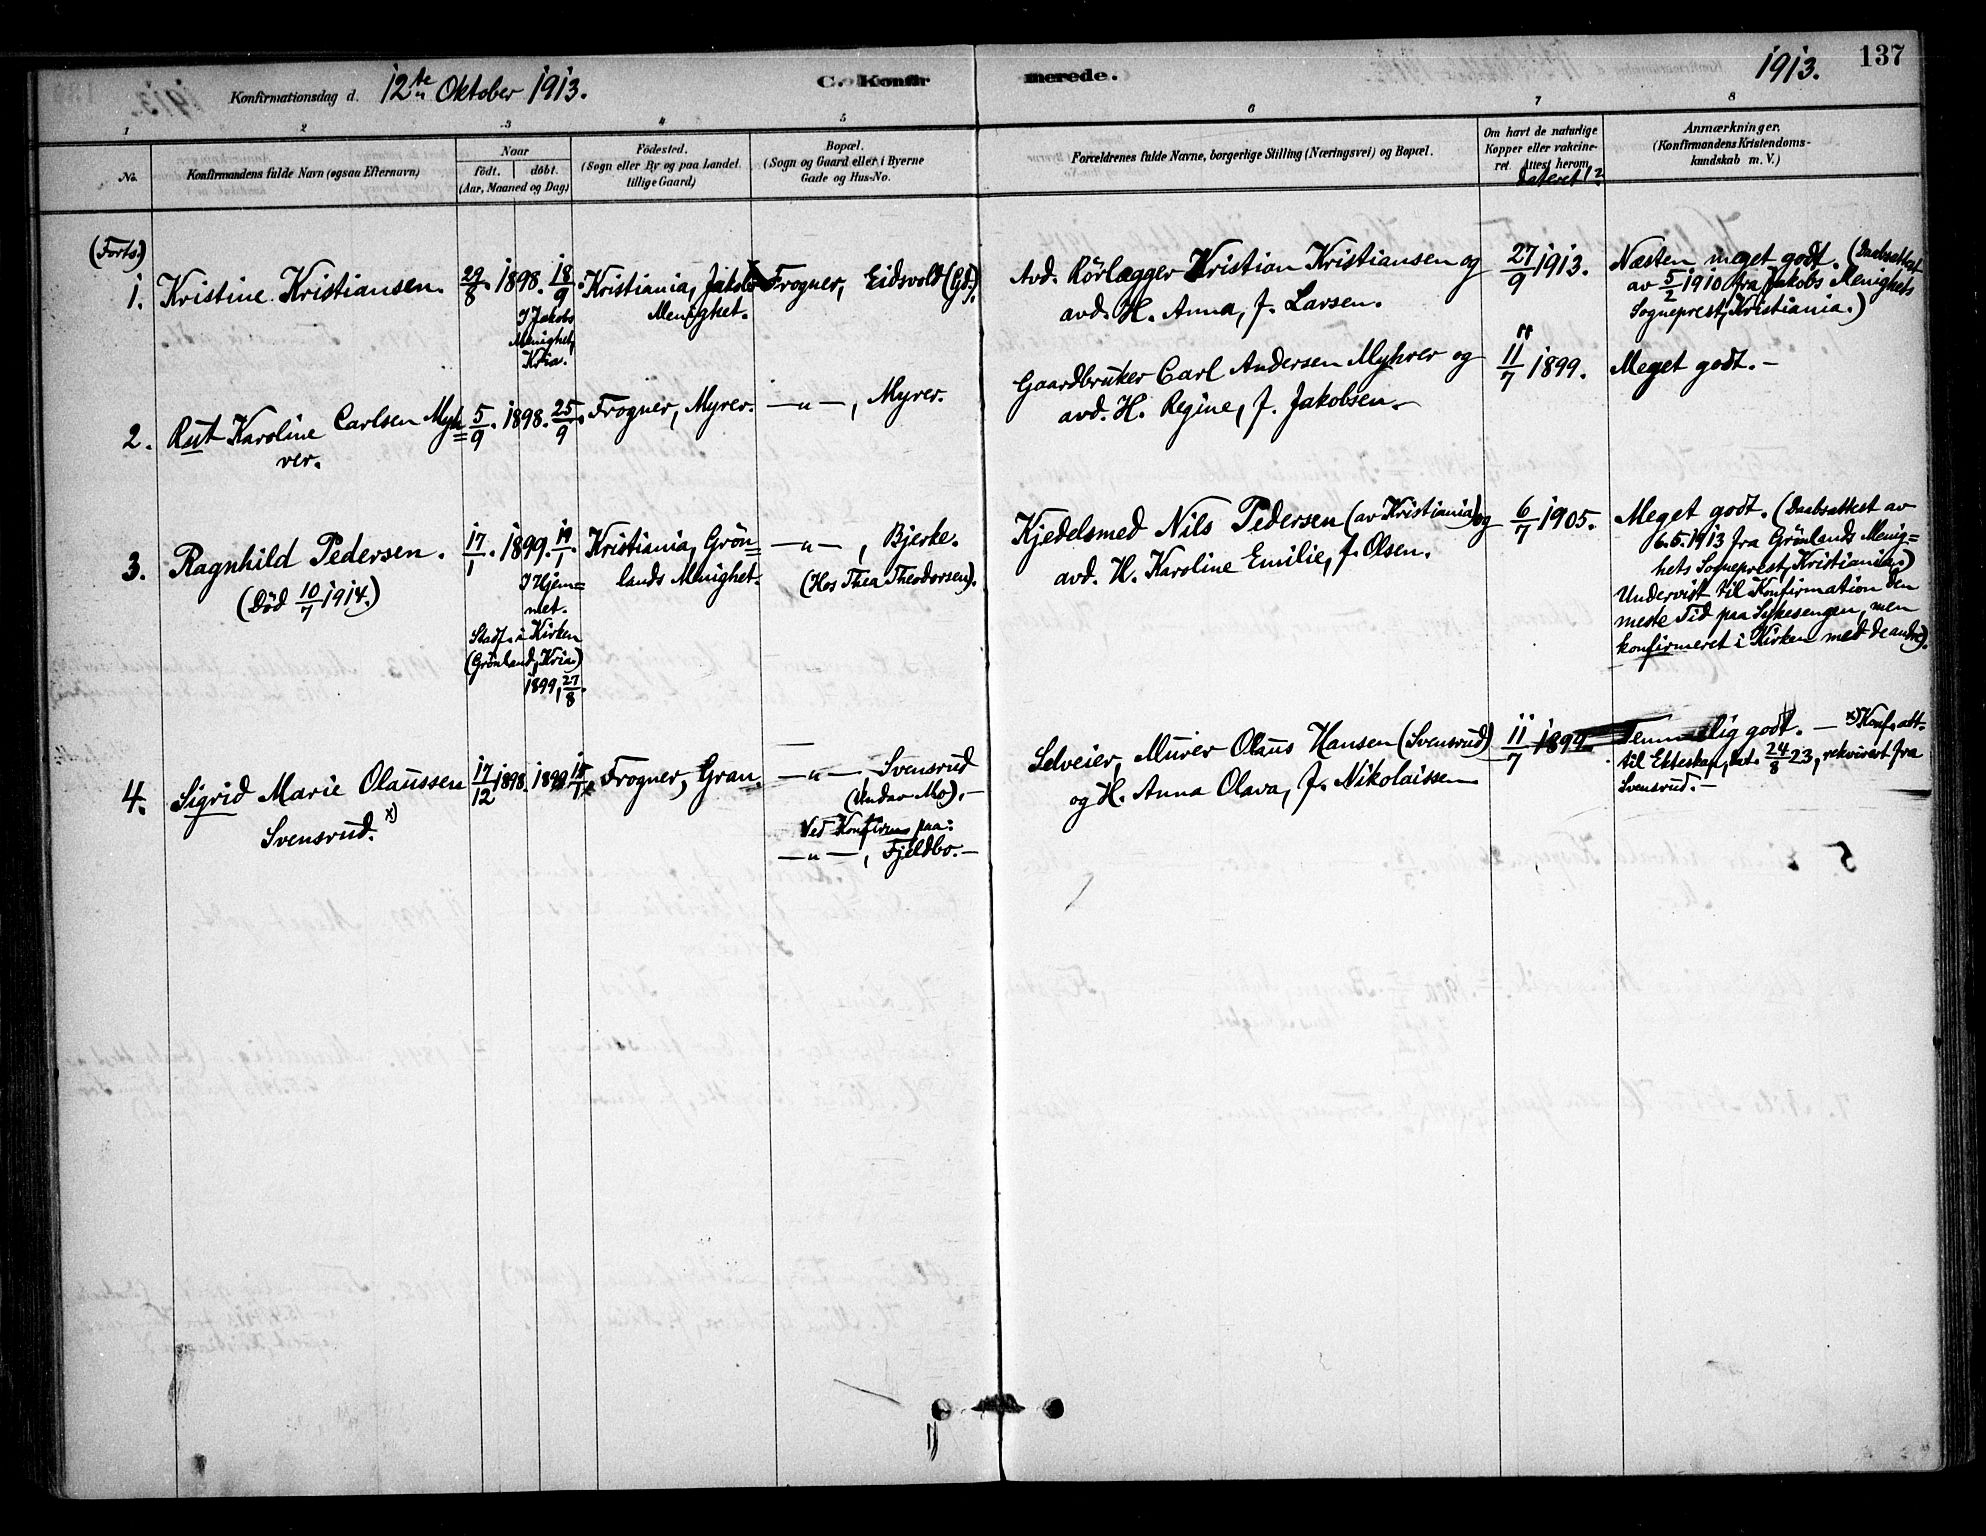 137
Konfirmationsdag d. 12te Oktober 1913.
C. Konfir
merede.
1913.
1
2
3
4
5
6
7
8
No.
Konfirmandens fulde Navn (ogsaa Efternavn)
Naar
født. døbt.
(Aar, Maaned og Dag)
Födested.
(Sogn eller By og paa Landet
tillige Gaard)
Bopæl.
(Sogn og Gaard eller i Byerne
Gade og Hus-No.
Forældrenes fulde Navne, borgerlige Stilling (Næringsvei) og Bopæl.
Om havt de naturlige
Kopper eller vakcine-
ret. Attest herom
dateret?
Anmærkninger.
(Konfirmandens Kristendoms-
kundskab m. V.)
(Forts.)
1.
Kristine Kristiansen.
29/8. 1898. 18/9.
I Jakobs
Menighet,
Kria.
Kristiania, Jakobs
Menighet.
Frogner, Eidsvold (Gd.).
Avd. Rörlægger Kristian Kristiansen og
avd. H. Anna, f. Larsen.
27/9 1913.
Næsten meget godt. (Daabsattest
av 5/2 1910 fra Jakobs Menighets
Sogneprest, Kristiania.)
2.
Rut Karoline Carlsen Myh=
rer.
5/9. 1898. 25/9.
Frogner, Myrer.
—"—, Myrer.
Gaardbruker Carl Andersen Myhrer og
avd. H. Regine, f. Jakobsen.
11/7 1899.
Meget godt. —
3.
Ragnhild Pedersen.
(Död 10/7 1914.)
17/1. 1899. 19/1.
I Hjem=
met.
Stadf. i Kirken
(Grönland, Kria)
1899, 27/8.
Kristiania, Grön=
lands Menighet.
—"—, Bjerke.
(Hos Thea Theodorsen).
Kjedelsmed Nils Pedersen (av Kristiania) og
avd. H. Karoline Emilie, f. Olsen.
6/7 1905.
Meget godt. (Daabsattest av
6.5.1913 fra Grönlands Menig=
hets Sogneprest, Kristiania.)
Undervist til Konfirmation den
meste Tid paa Sykesengen, men
konfirmeret i Kirken med de andre).
4.
Sigrid Marie Olaussen
Svensrud. x)
17/12 1898. 1899 15/1.
Frogner, Gran.
—"—, Svensrud
(Undar Mo). —
Ved Konfirm paa:
—"—, Fjeldbo. —
Selveier, Murer Olaus Hansen (Svensrud)
og H. Anna Olava, f. Nikolaissen
11/7 1899.
Temmelig godt. — x) Konf. att.
til Ekteskap, dat. 24/8 23, rekvirert fra
Svensrud. —